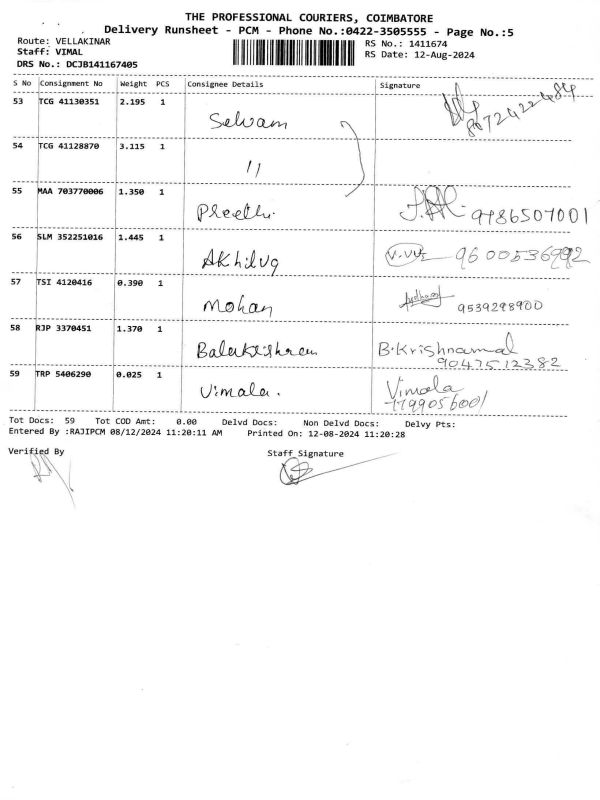 THE PROFESSIONAL COURIERS, COIMBATORE
Delivery Runsheet - PCM - Phone No.:0422-3505555 - Page No.:5
Route: VELLAKINAR
RS No.: 1411674
Staff: VIMAL
RS Date: 12-Aug-2024
DRS No.: DCJB141167405
S No Consignment No Weight PCS Consignee Details Signature
53 TCG 41130351 2.195 1 Selvam
54 TCG 41128870 3.115 1 11
55 MAA 703770006 1.350 1 Preethi. 9786507001
56 SLM 352251016 1.445 1 9600536992
57 TSI 4120416 0.390 1 Mohan 9539298900
58 RJP 3370451 1.370 1 B.Krishnamal
9047512382
59 TRP 5406290 0.025 1 Vimala. Vimala
Tot Docs: 59 Tot COD Amt: 0.00 Delvd Docs: Non Delvd Docs: Delvy Pts:
Entered By :RAJIPCM 08/12/2024 11:20:11 AM Printed On: 12-08-2024 11:20:28
Verified By Staff Signature